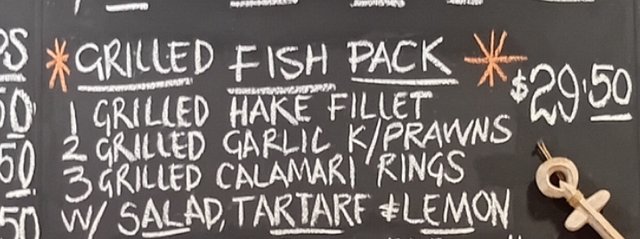 *GRILLED FISH PACK* $29.50
1 GRILLED HAKE FILLET
2 GRILLED GARLIC K/PRAWNS
3 GRILLED CALAMARI RINGS
W/ SALAD, TARTARE & LEMON